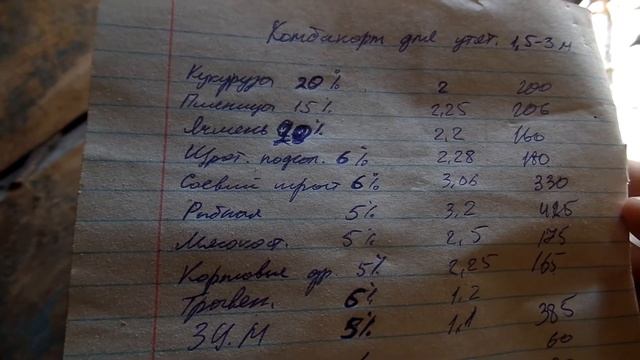 Комбикорм для утят. 1,5-3 м
Кукуруза 20% 2 200
Пшеница 15% 2,25 206
Ячмень 20% 2,2 160
Шрот. подсол. 6% 2,28 180
Соевий шрот 6% 3,06 330
Рыбная 5% 3,2 425
Мясокост. 5% 2,5 175
Кормовие др. 5% 2,25 165
Травян. 6% 1,2
З Ц. М 3% 1,1 385
60